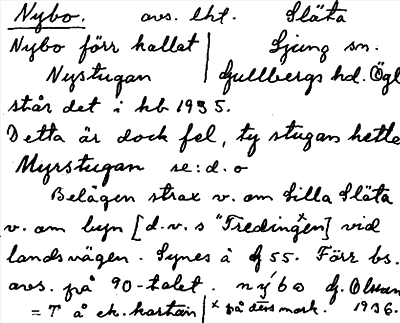 Nybo. avs. lht. Släta
Nybo förr kallat | Ljung sn.
Nystugan | Gullbergs hd. Ögl
står det i kb 1935.
Detta är dock fel, ty stugan hette
Myrstugan se: d. o
Belägen strax v. om Lilla Släta
v. om byn [d.v.s "Tredingen] vid
landsvägen. Synes å G 55. Förr bs.
avs. på 90-talet. nýbo G. Olsson
= T å ek. kartan | x på dess mark. 1936.